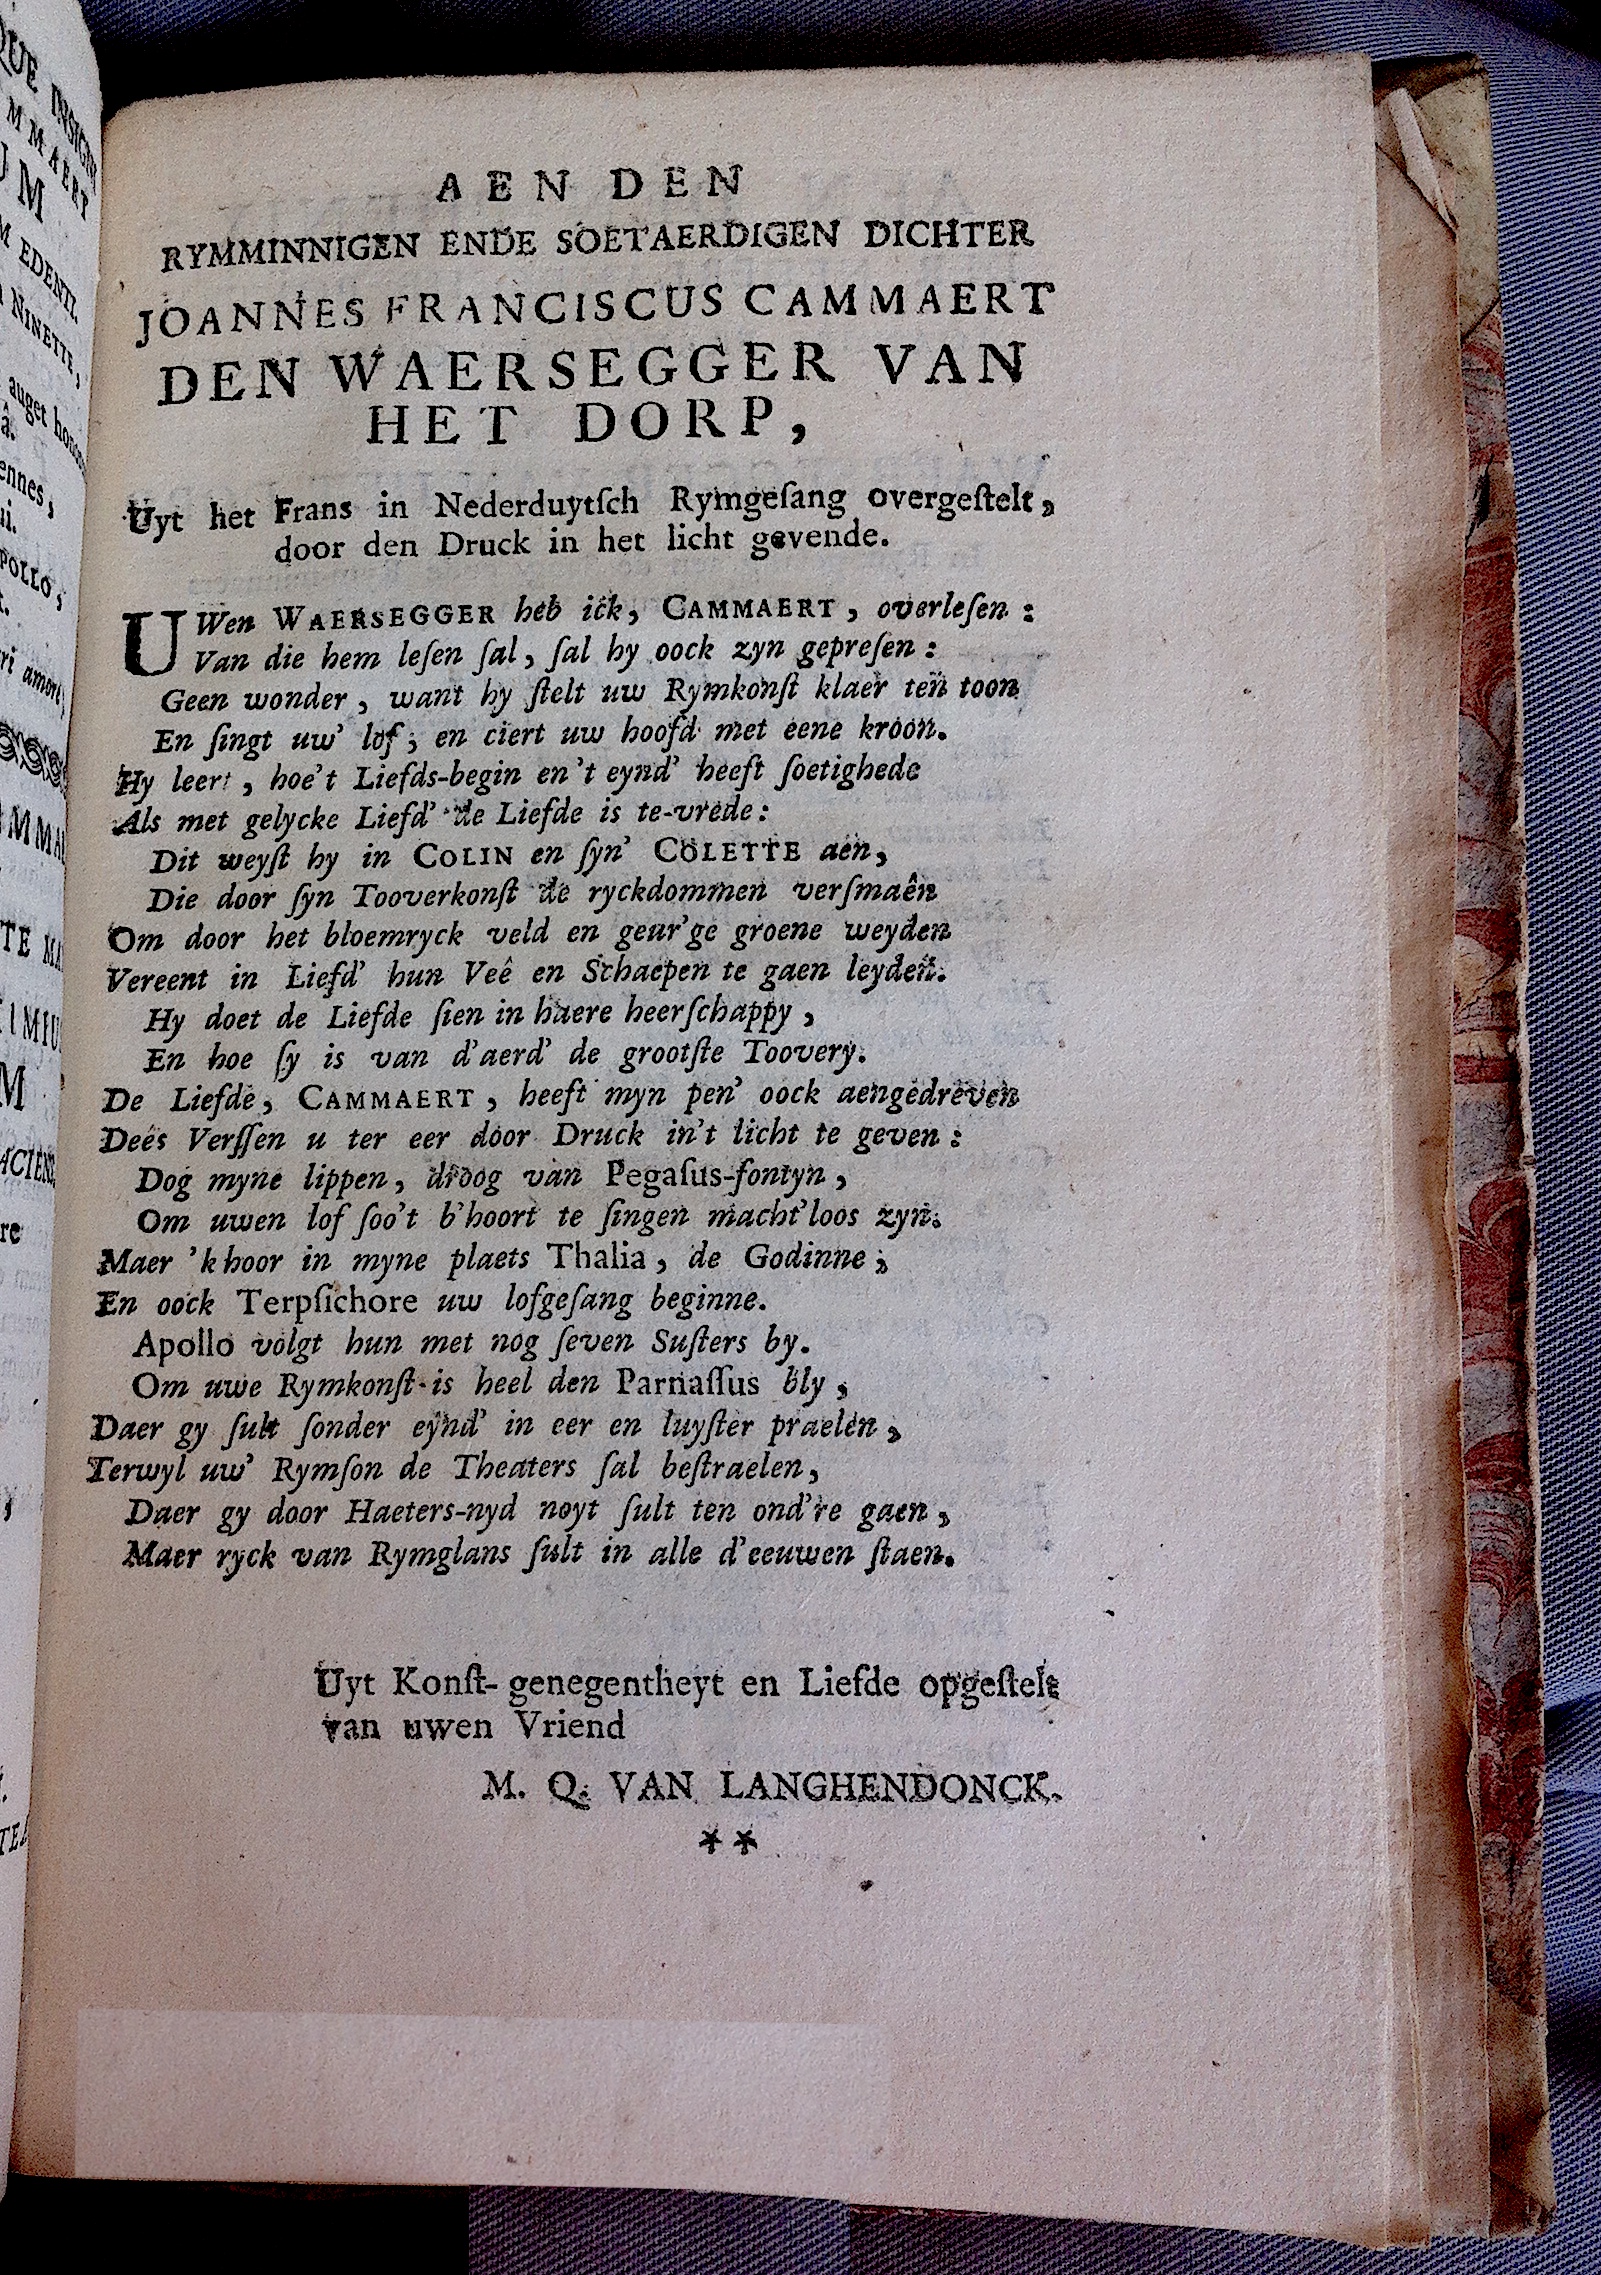 AEN DEN
RYMMINNIGEN ENDE SOETAERDIGEN DICHTER
JOANNES FRANCISCUS CAMMAERT
DEN WAERSEGGER VAN
HET DORP,
Uyt het Frans in Nederduytſch Rymgeſang overgeſtelt,
door den Druck in het licht gevende.
UWen WAERSEGGER heb ick, CAMMAERT, overleſen:
Van die hem leſen ſal, ſal hy oock zyn gepreſen:
Geen wonder, want hy ſtelt uw Rymkonſt klaer ten toon
En ſingt uw' lof; en ciert uw hoofd met eene kroon.
Hy leert, hoe't Liefds-begin en't eynd' heeft ſoetighede
Als met gelycke Liefd' de Liefde is te-vrede:
Dit weyſt hy in COLIN en ſyn' COLETTE aen,
Die door ſyn Tooverkonſt de ryckdommen verſmaên
Om door het bloemryck veld en geur'ge groene weyden
Vereent in Liefd' hun Veê en Schaepen te gaen leyden.
Hy doet de Liefde ſien in haere heerſchappy,
En hoe ſy is van d'aerd' de grootſte Toovery.
De Liefde, CAMMAERT, heeft myn pen' oock aengedreven
Deês Verſſen u ter eer door Druck in't licht te geven:
Dog myne lippen, droog van Pegaſus-fontyn,
Om uwen lof ſoo't b'hoort te ſingen macht'loos zyn.
Maer 'k hoor in myne plaets Thalia, de Godinne,
En oock Terpſichore uw lofgeſang beginne.
Apollo volgt hun met nog ſeven Suſters by.
Om uwe Rymkonſt is heel den Parnaſſus bly,
Daer gy ſult ſonder eynd' in eer en luyſter praelen,
Terwyl uw' Rymſon de Theaters ſal beſtraelen,
Daer gy door Haeters-nyd noyt ſult ten ond're gaen,
Maer ryck van Rymglans ſult in alle d'eeuwen ſtaen.
Uyt Konſt-genegentheyt en Liefde opgeſtelt
van uwen Vriend
M. Q. VAN LANGHENDONCK.
**